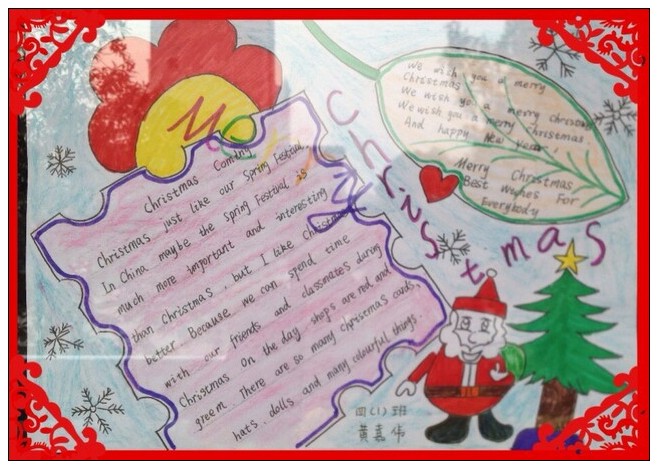 Me
Christmas
We wish you a merry
Christmas
We wish yo a merry christmas
We wish you a merry Christmas
And happy New Year,
Merry Christmas
Best wishes For
Everybody
Christmas Coming
Christmas just like our Spring Festival
In China maybe the Spring Festival is
much more important and interesting
than Christmas, but I like Christmas
better. Because we can spend time
with our friends and classmates during
Christmas On the day shops are red and
green There are so many Christmas cards,
hats. dolls and many colourful things.
四(1)班
黄嘉伟